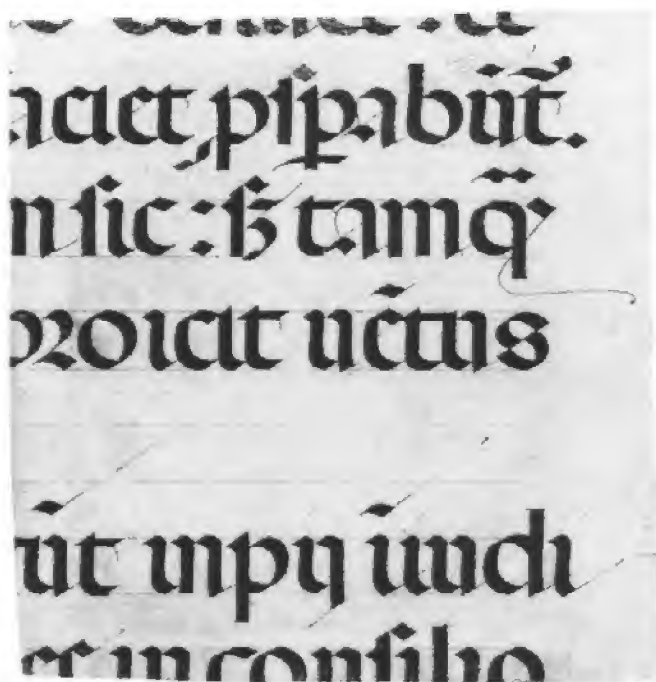 aciet ꝓſꝑabūt̃.
n ſic : ſꝫ tamq̃
oicit uētus
ūt impij ī iudi
in conſilio